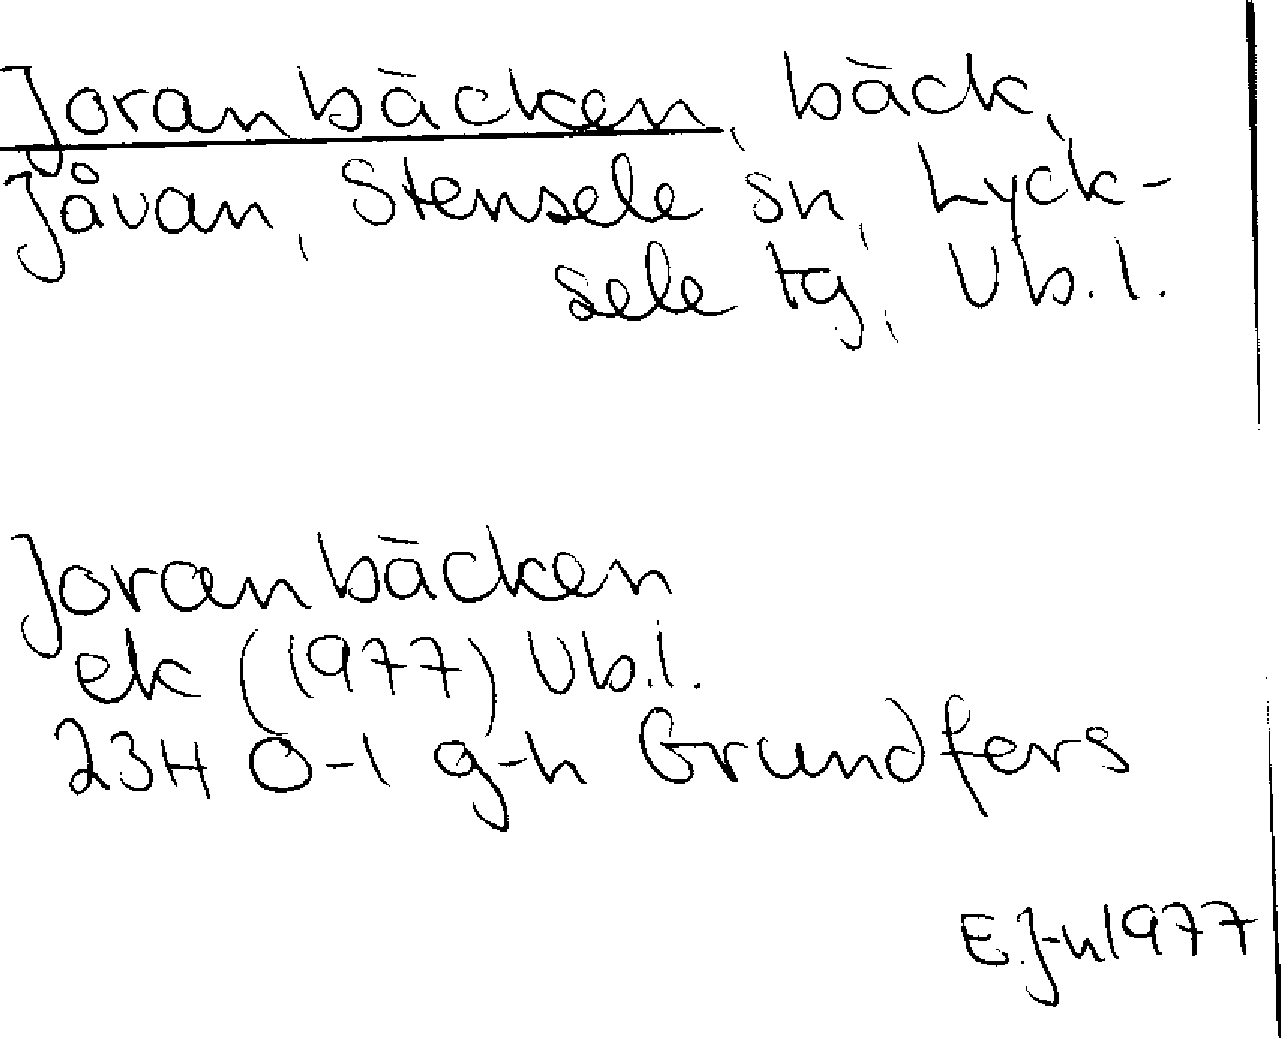 Joranbäcken, bäck,
Jåvan, Stensele sn, Lyck-
sele tg, Vb.l.
Joranbäcken
ek (1977) Vb.l.
23H 0-1 g-h Grundfors
E.J-n 1977